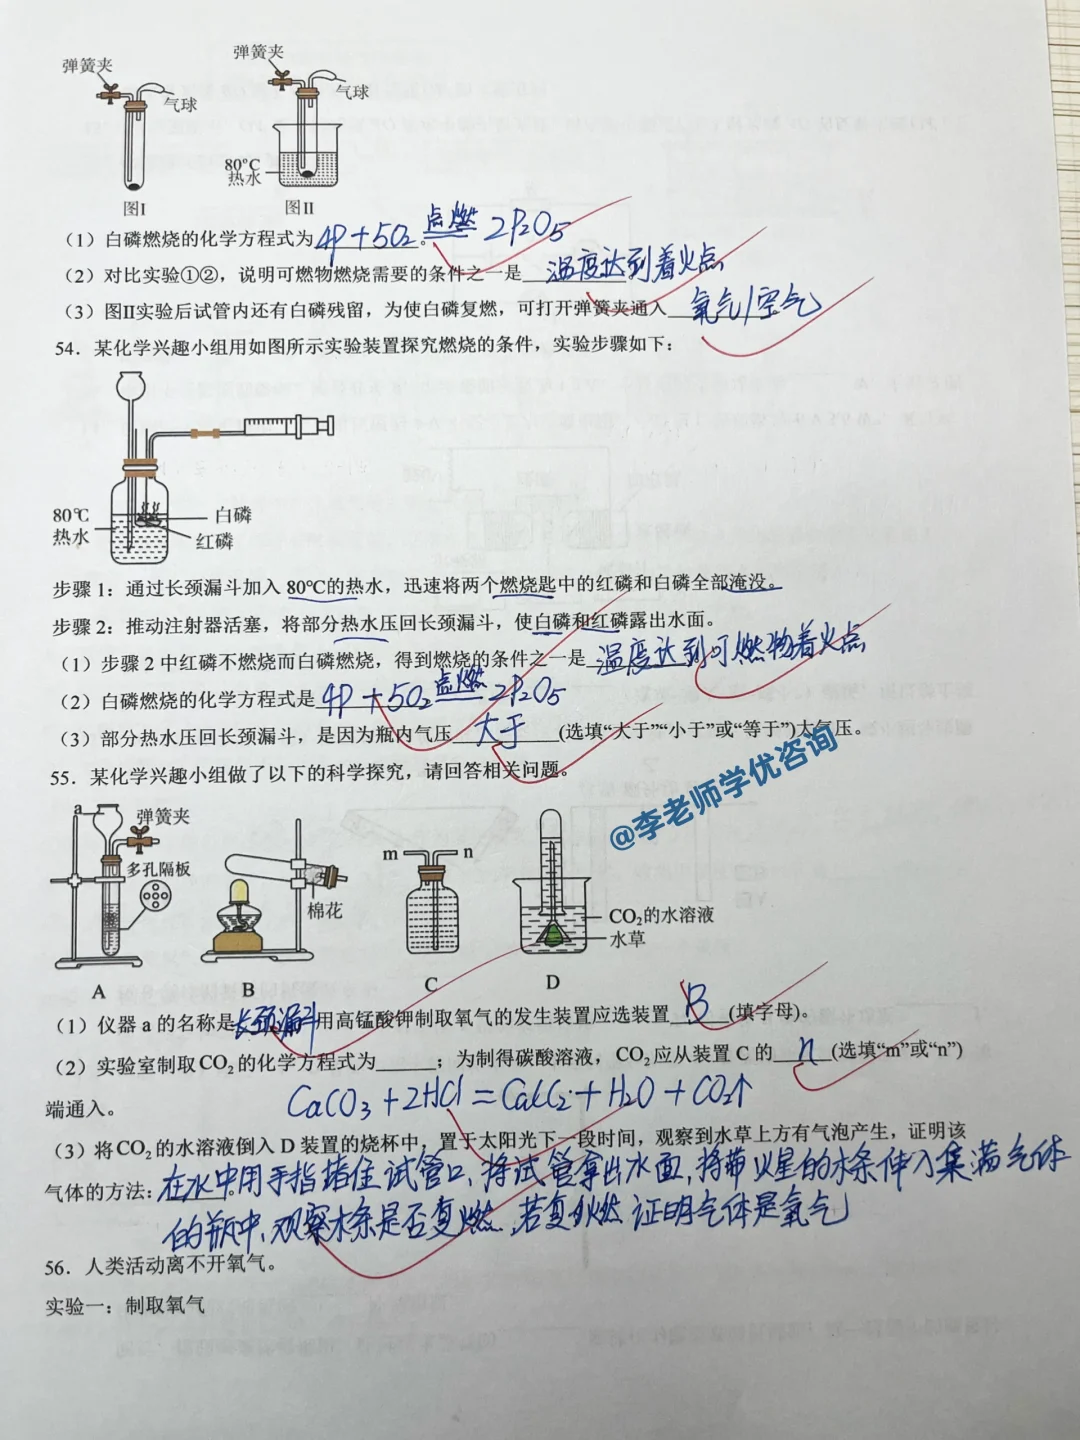 弹簧夹 弹簧夹
气球 气球
80°C
热水
图I 图II
(1)白磷燃烧的化学方程式为4P+5O₂ 点燃 2P₂O₅。
(2)对比实验①②，说明可燃物燃烧需要的条件之一是 温度达到着火点
(3)图II实验后试管内还有白磷残留，为使白磷复燃，可打开弹簧夹通入 氧气/空气
54．某化学兴趣小组用如图所示实验装置探究燃烧的条件，实验步骤如下：
80℃
热水
白磷
红磷
步骤1：通过长颈漏斗加入80℃的热水，迅速将两个燃烧匙中的红磷和白磷全部淹没。
步骤2：推动注射器活塞，将部分热水压回长颈漏斗，使白磷和红磷露出水面。
(1)步骤2中红磷不燃烧而白磷燃烧，得到燃烧的条件之一是 温度达到可燃物着火点
(2)白磷燃烧的化学方程式是 4P+5O₂ 点燃 2P₂O₅
(3)部分热水压回长颈漏斗，是因为瓶内气压 大于 (选填“大于”“小于”或“等于”)大气压。
55．某化学兴趣小组做了以下的科学探究，请回答相关问题。
@李老师学优咨询
a 弹簧夹
多孔隔板
棉花
m n
CO₂的水溶液
水草
A B C D
(1)仪器a的名称是长颈漏斗用高锰酸钾制取氧气的发生装置应选装置 B (填字母)。
(2)实验室制取CO₂的化学方程式为______；为制得碳酸溶液，CO₂应从装置C的 n (选填“m”或“n”)
端通入。 CaCO₃+2HCl=CaCl₂+H₂O+CO₂↑
(3)将CO₂的水溶液倒入D装置的烧杯中，置于太阳光下一段时间，观察到水草上方有气泡产生，证明该
气体的方法：在水中用手指堵住试管口，将试管拿出水面，将带火星的木条伸入集满气体
的瓶中，观察木条是否复燃，若复燃证明气体是氧气
56．人类活动离不开氧气。
实验一：制取氧气